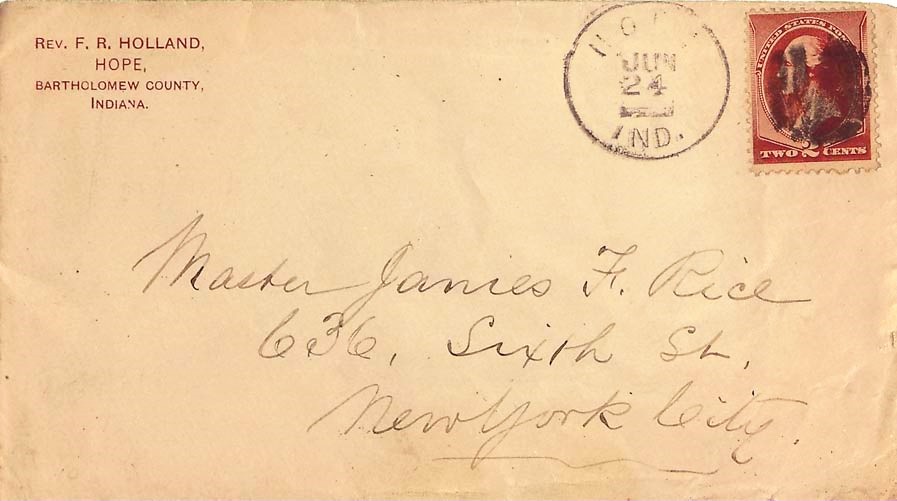 REV. F. R. HOLLAND,
HOPE,
BARTHOLOMEW COUNTY,
INDIANA.
JUN
24
IND.
UNITED STATES POST
TWO 2 CENTS
Master James F. Rice
636, Sixth St,
New York City.